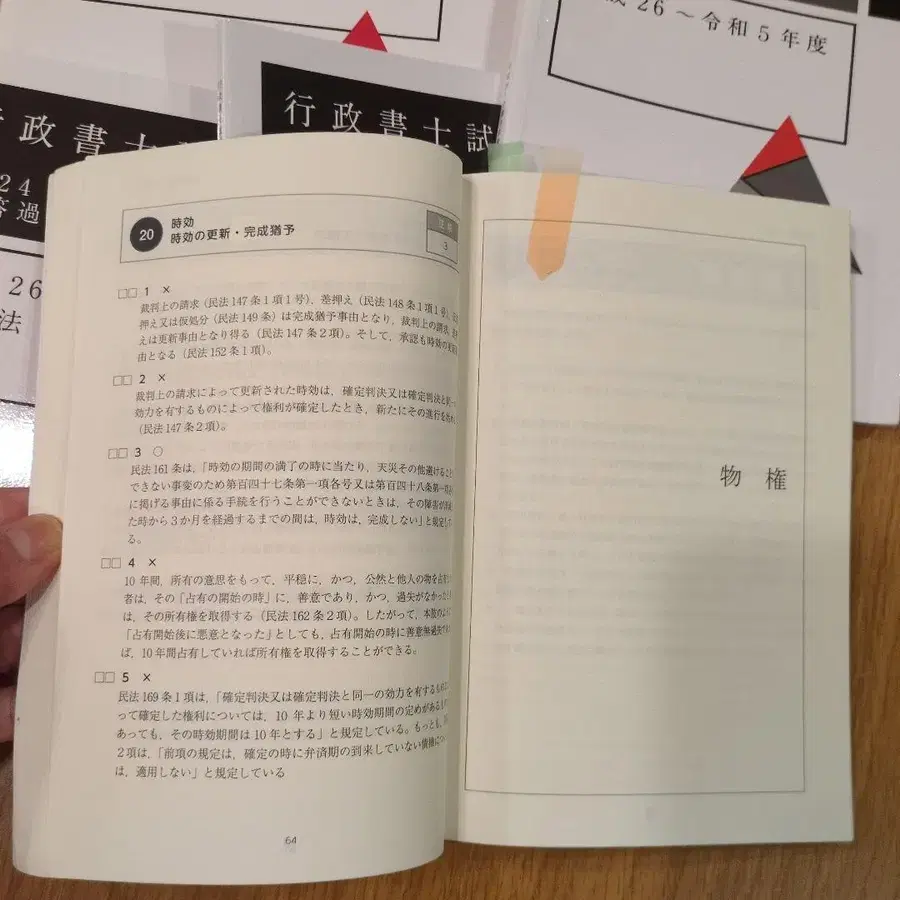 26～令和5年度
行政書士試
政書士
24
答過
26
法
20 時効
時効の更新・完成猶予
3
□□ 1 ×
裁判上の請求（民法147条1項1号），差押え（民法148条1項1号），
押え又は仮処分（民法149条）は完成猶予事由となり，裁判上の請求，
えは更新事由となり得る（民法147条2項）。そして，承認も時効の更新
由となる（民法152条1項）。
□□ 2 ×
裁判上の請求によって更新された時効は，確定判決又は確定判決と同一
効力を有するものによって権利が確定したとき，新たにその進行を
（民法147条2項）。
□□ 3 ○
民法161条は，「時効の期間の満了の時に当たり，天災その他避けること
できない事変のため第百四十七条第一項各号又は第百四十八条第一項
に掲げる事由に係る手続を行うことができないときは，その障害が
た時から3か月を経過するまでの間は，時効は，完成しない」と規定して
る。
□□ 4 ×
10年間，所有の意思をもって，平穏に，かつ，公然と他人の物を占有
者は，その「占有の開始の時」に，善意であり，かつ，過失がなかった
は，その所有権を取得する（民法162条2項）。したがって，本肢の
「占有開始後に悪意となった」としても，占有開始の時に善意無過失
ば，10年間占有していれば所有権を取得することができる。
□□ 5 ×
民法169条1項は，「確定判決又は確定判決と同一の効力を有するもの
って確定した権利については，10年より短い時効期間の定めがあるもの
あっても，その時効期間は10年とする」と規定している。もっとも，
2項は，「前項の規定は，確定の時に弁済期の到来していない債権につ
は，適用しない」と規定している
64
物権